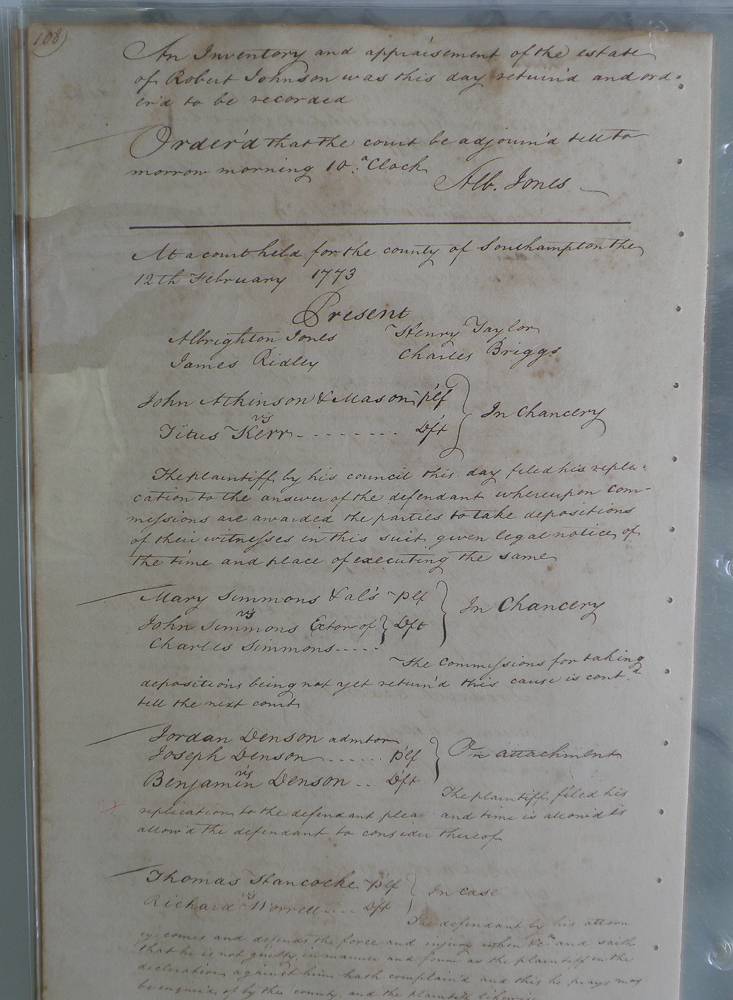 108
An Inventory and appraisement of the estate
of Robert Johnson was this day return'd and ord-
er'd to be recorded
Order'd that the court be adjourn'd till to
morrow morning 10 o Clock
Alb. Jones
At a court held for the county of Southampton the
12th February 1773
Present
Albrighton Jones Henry Taylor
James Ridley Charles Briggs
John Atkinson & Mason plf
vs
Titus Kerr - - - - - - - - Dft
In Chancery
The plaintiff by his council this day filed his repli-
cation to the answer of the defendant whereupon com-
missions are awarded the parties to take depositions
of their witnesses in this suit given legal notice of
the time and place of executing the same
Mary Simmons & al's plf
vs
John Simmons Extor of } Dft
Charles Simmons .....
In Chancery
The commissions for taking
depositions being not yet return'd this cause is cont.d
till the next court
Jordan Denson admtor
Joseph Denson ...... plf
vs
Benjamin Denson .. Dft
On attachment
The plaintiff filed his
replication to the defendant plea and time is allow'd is
allow'd the defendant to consider thereof
Thomas Hancocke plf
vs
Richard Worrell .... Dft
In case
The defendant by his attorn
ey comes and defends the force and injury when &c.a and saith
that he is not guilty in manner and form as the plaintiff in the
declaration against him hath complain'd and this he prays may
be enquir'd of by the county and the plaintiff likewise